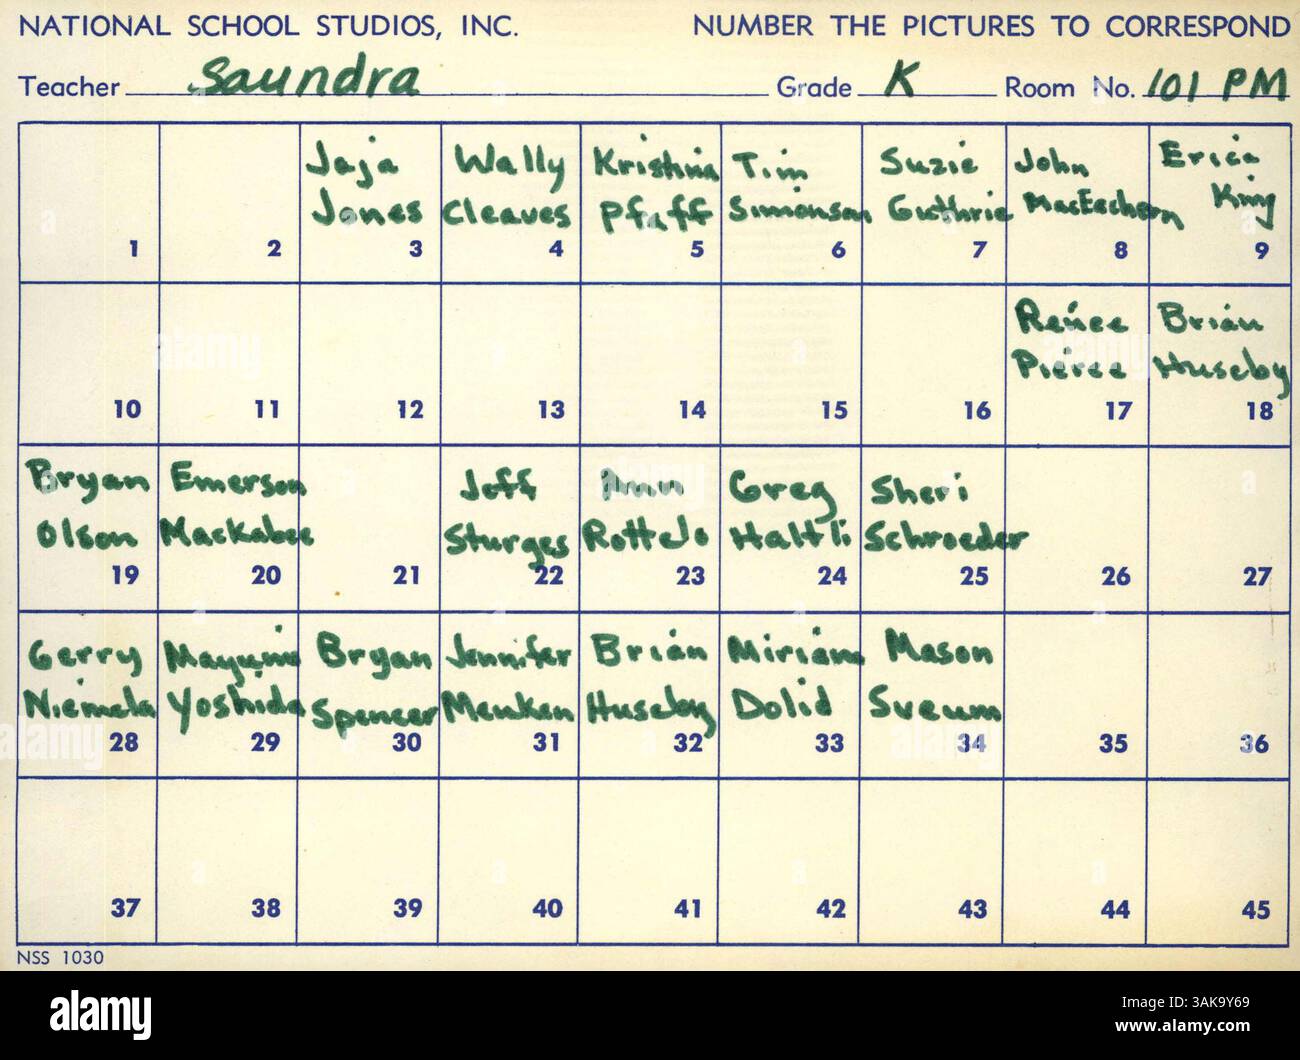 NATIONAL SCHOOL STUDIOS, INC. NUMBER THE PICTURES TO CORRESPOND
Teacher Saundra Grade K Room No. 101 PM
Jaja Jones 3
Wally Cleaves 4
Krishna Pfaff 5
Tim Simonson 6
Suzie Guthrie 7
John MacEachern 8
Erica King 9
1 2
10 11 12 13 14 15 16
Renee Pierce 17
Brian Huseby 18
Bryan Olson 19
Emerson Mackabee 20
21
Jeff Sturges 22
Ann Rottelo 23
Greg Haltli 24
Sheri Schroeder 25
26 27
Gerry Niemela 28
Mayumi Yoshida 29
Bryan Spencer 30
Jennifer Menken 31
Brian Huseby 32
Miriam Dolid 33
Mason Sveum 34
35 36
37 38 39 40 41 42 43 44 45
NSS 1030
alamy
Image ID: 3AK9Y69
www.alamy.com